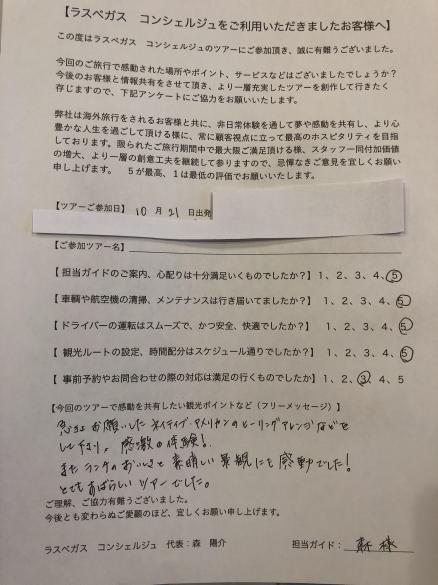 【ラスベガス　コンシェルジュをご利用いただきましたお客様へ】
この度はラスベガス　コンシェルジュのツアーにご参加頂き、誠に有難うございました。
今回のご旅行で感動された場所やポイント、サービスなどはございましたでしょうか？
今後のお客様と情報共有をさせて頂き、より一層充実したツアーを創作して行きたく
存じますので、下記アンケートにご協力をお願いいたします。
弊社は海外旅行をされるお客様と共に、非日常体験を通して夢や感動を共有し、より心
豊かな人生を過ごして頂ける様に、常に顧客視点に立って最高のホスピタリティを目指
しております。限られたご旅行期間中で最大限ご満足頂ける様、スタッフ一同付加価値
の増大、より一層の創意工夫を継続して参りますので、忌憚なきご意見を宜しくお願い
申し上げます。　5が最高、1は最低の評価でお願いいたします。
【ツアーご参加日】 10 月 21 日出発
【ご参加ツアー名】
【担当ガイドのご案内、心配りは十分満足いくものでしたか？】 1、2、3、4、5
【車輌や航空機の清掃、メンテナンスは行き届いてましたか？】 1、2、3、4、5
【ドライバーの運転はスムーズで、かつ安全、快適でしたか？】 1、2、3、4、5
【 観光ルートの設定、時間配分はスケジュール通りでしたか？】 1、2、3、4、5
【 事前予約やお問合わせの際の対応は満足の行くものでしたか】 1、2、3、4、5
【今回のツアーで感動を共有したい観光ポイントなど（フリーメッセージ）】
急きょお願いした ネイティブ・アメリカンの ヒーリングアレンジなどを
して下さり、感激の体験！
またランチのおいしさと 素晴しい景観にも感動でした！
とてもすばらしいツアーでした。
ご理解、ご協力有難うございました。
今後とも変わらぬご愛顧のほど、宜しくお願い申し上げます。
ラスベガス　コンシェルジュ　代表：森　陽介
担当ガイド： 森 様